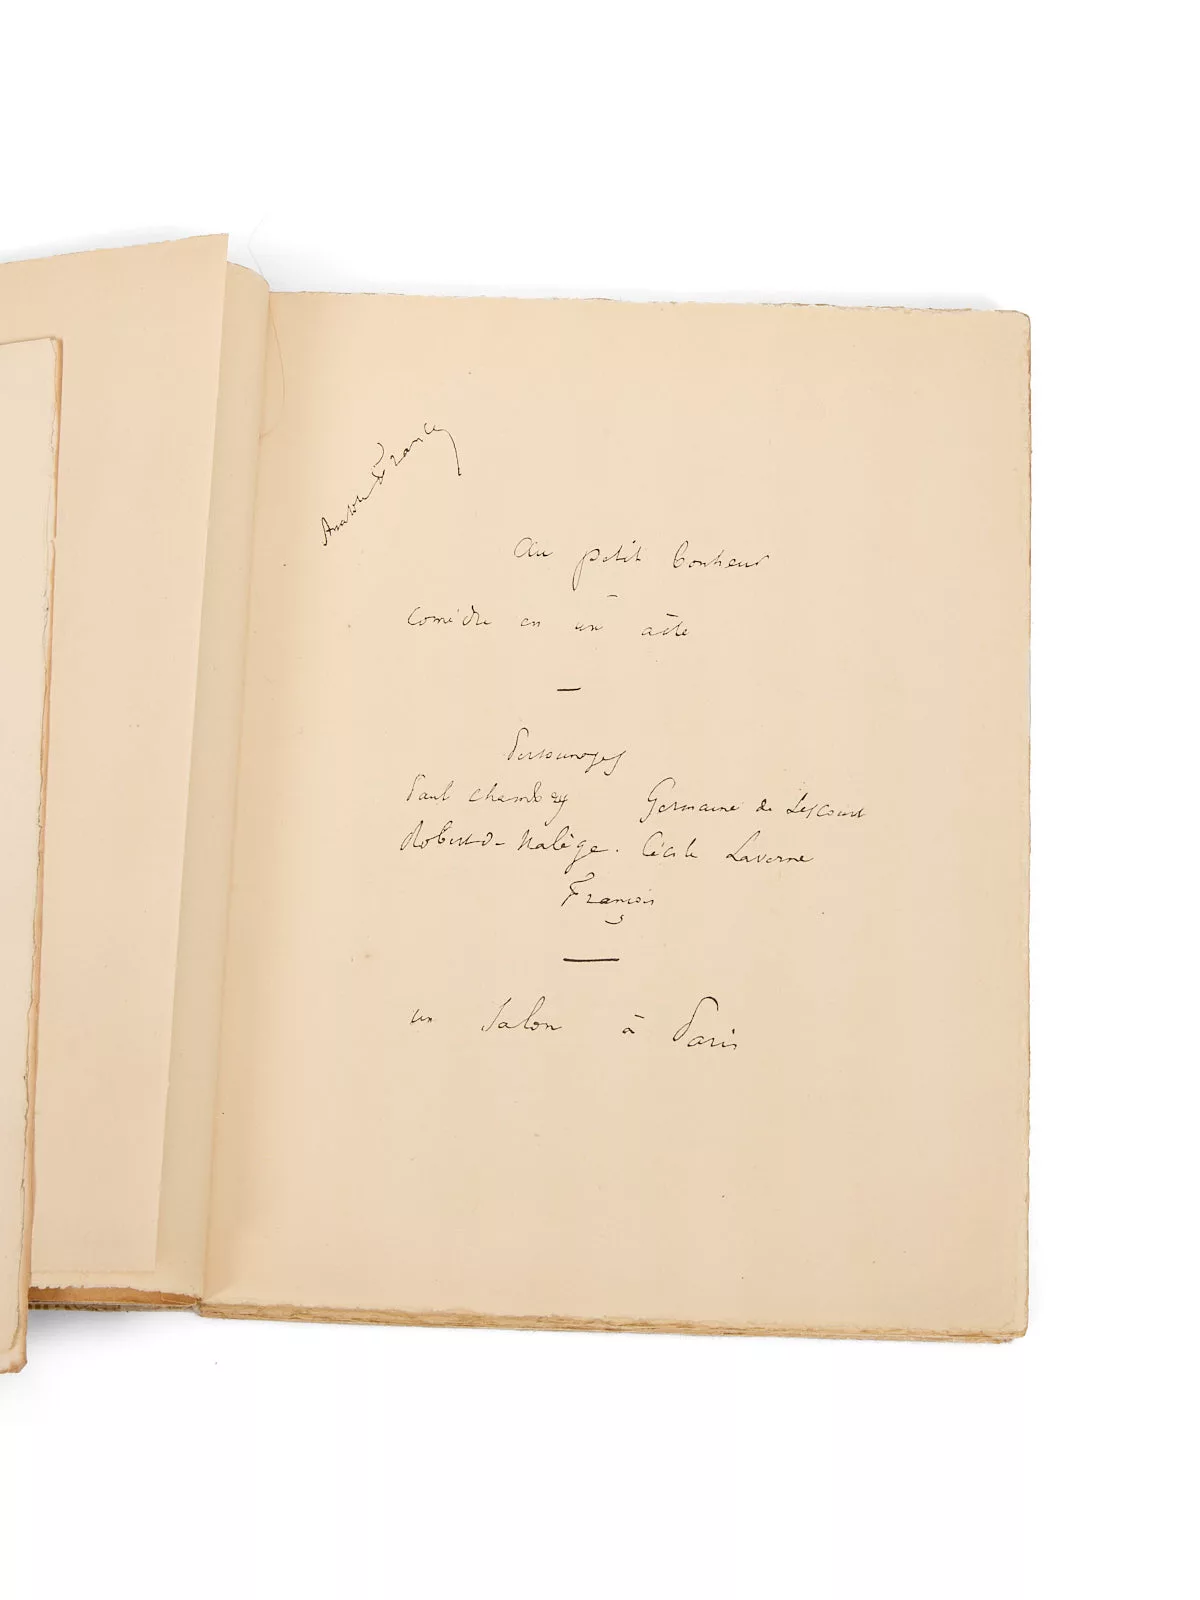 Anatole France
Au petit bonheur
comédie en un acte
Personnages
Paul Chambry Germaine de Lescourt
Robert de Nalège. Cécile Laverne
François
un Salon à Paris